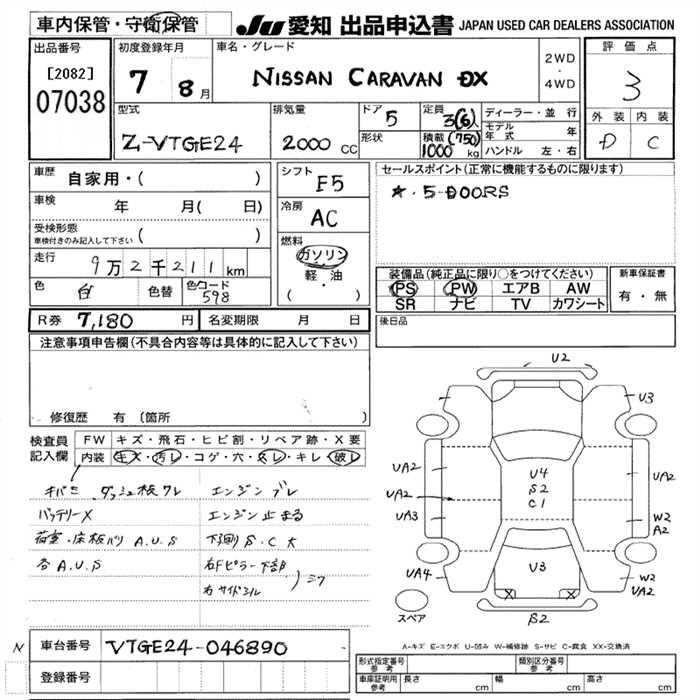 車内保管・守衛保管
JU 愛知 出品申込書 JAPAN USED CAR DEALERS ASSOCIATION
出品番号
[2082]
07038
初度登録年月
7 8月
車名・グレード
NISSAN CARAVAN DX
2WD
・
4WD
評価点
3
外装 内装
D C
型式
Z-VTGE24
排気量
2000 CC
ドア
5
形状
定員
3(6)人
積載 (750)
1000 kg
ディーラー・並行
モデル年式 年
ハンドル 左・右
車歴 自家用・( )
車検 年 月( 日)
受検形態
車検付きのみ記入して下さい ( )
走行 9万2千211km
色 白 色替 色コード 598
シフト
F5
冷房
AC
燃料
ガソリン
軽・油
( )
セールスポイント(正常に機能するものに限ります)
☆.5-DOORS
装備品(純正品に限り○をつけてください)
PS PW エアB AW
SR ナビ TV カワシート
新車保証書
有・無
R券 7,180 円 名変期限 月 日
後日品
注意事項申告欄(不具合内容等は具体的に記入して下さい)
修復歴 有(箇所 )
検査員
記入欄
FW キズ・飛石・ヒビ割・リペア跡・X要
内装 キズ・汚レ・コゲ・穴・スレ・キレ・破レ
キバミ ダッシュ板ワレ エンジン ブレ
バッテリーX エンジン止まる
荷室・床板バリ A.U.S 下廻り S.C大
各A.U.S 右Fピラー下部
右サイドシル )ミワ
U2
U3
UA2
UA2
UA3
UA4
U4
S2
C1
U3
UA2
W2
A2
W2
UA2
X X
S2
スペア
A-キズ E-エクボ U-凹み W-補修跡 S-サビ C-腐食 XX-交換済
N
車台番号 VTGE24-046890
登録番号
形式指定番号
参考
類別区分番号
参考
車庫証明用
参考
長さ cm 幅 cm 高さ cm